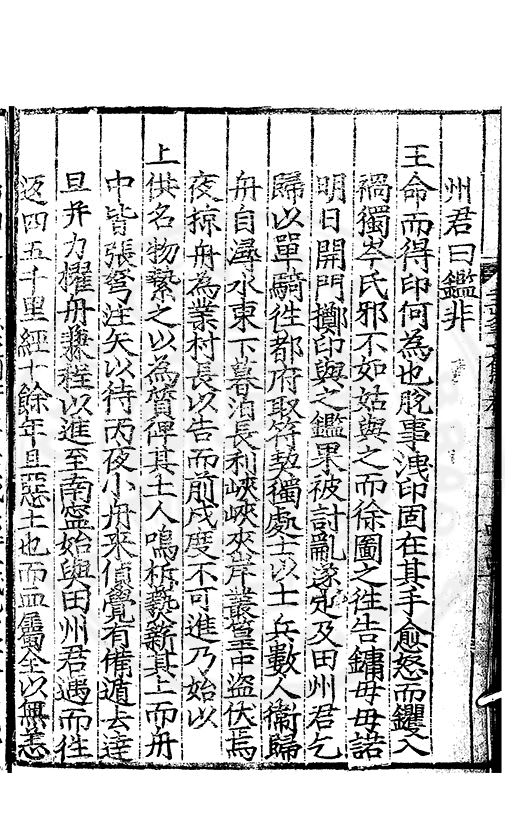 州君曰鑑非
王命而得印何為也脫事洩印固在其手愈怒而鑊入
禍獨岑氏邪不如姑與之而徐圖之徃告鏞毋毋諾
明日開門擲印與之鑑果被討亂遂定及田州君乞
歸以單騎徃都府取符契獨處士以士兵數人衛歸
舟自潯水東下暮泊長利峽峽夾岸叢篁中盜伏焉
夜掠舟為業村長以告而前戍度不可進乃始以
上供名物縶之以為質俾其土人鳴柝爇薪其上而舟
中皆張弩注矢以待丙夜小舟來偵覺有備遁去達
旦并力櫂舟兼程以進至南寧始與田州君遇而徃
返四五千里經十餘年且惡土也而血屬全以無恙